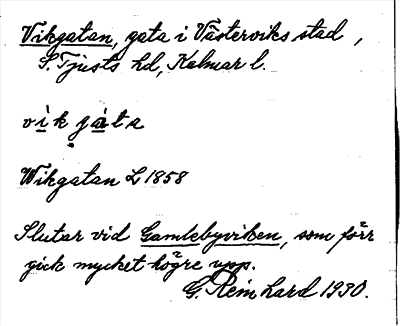 Vikgatan, gata i Västerviks stad,
S. Tjusts hd, Kalmar l.
vìkgàta
Wikgatan L 1858
Slutar vid Gamlebyviken, som förr
gick mycket högre upp.
G. Reinhard 1930.